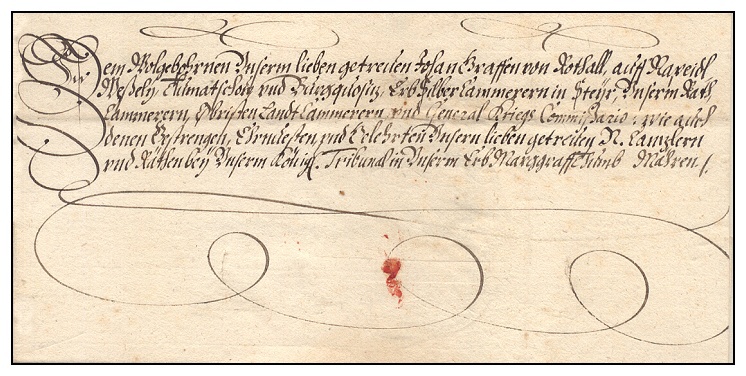 Dem Wolgebohrnen Unserm lieben getreuen Johan Graffen von Rothall, auff Nareidl
Weßely, und Burgquositz, Erb Silber Cammerern in Steyr, Unserm Rath
Cammerern, Obristen Landt Cämmerern und General Kriegs Commissario: wie auch
denen Gestrengen, Ehrnvesten, und Gelehrten Unsern lieben getreuen N. Canzlern
und Räthen bey Unserm Königl. Tribunal in Unserm Erb Marggraffthumb Mähren /.